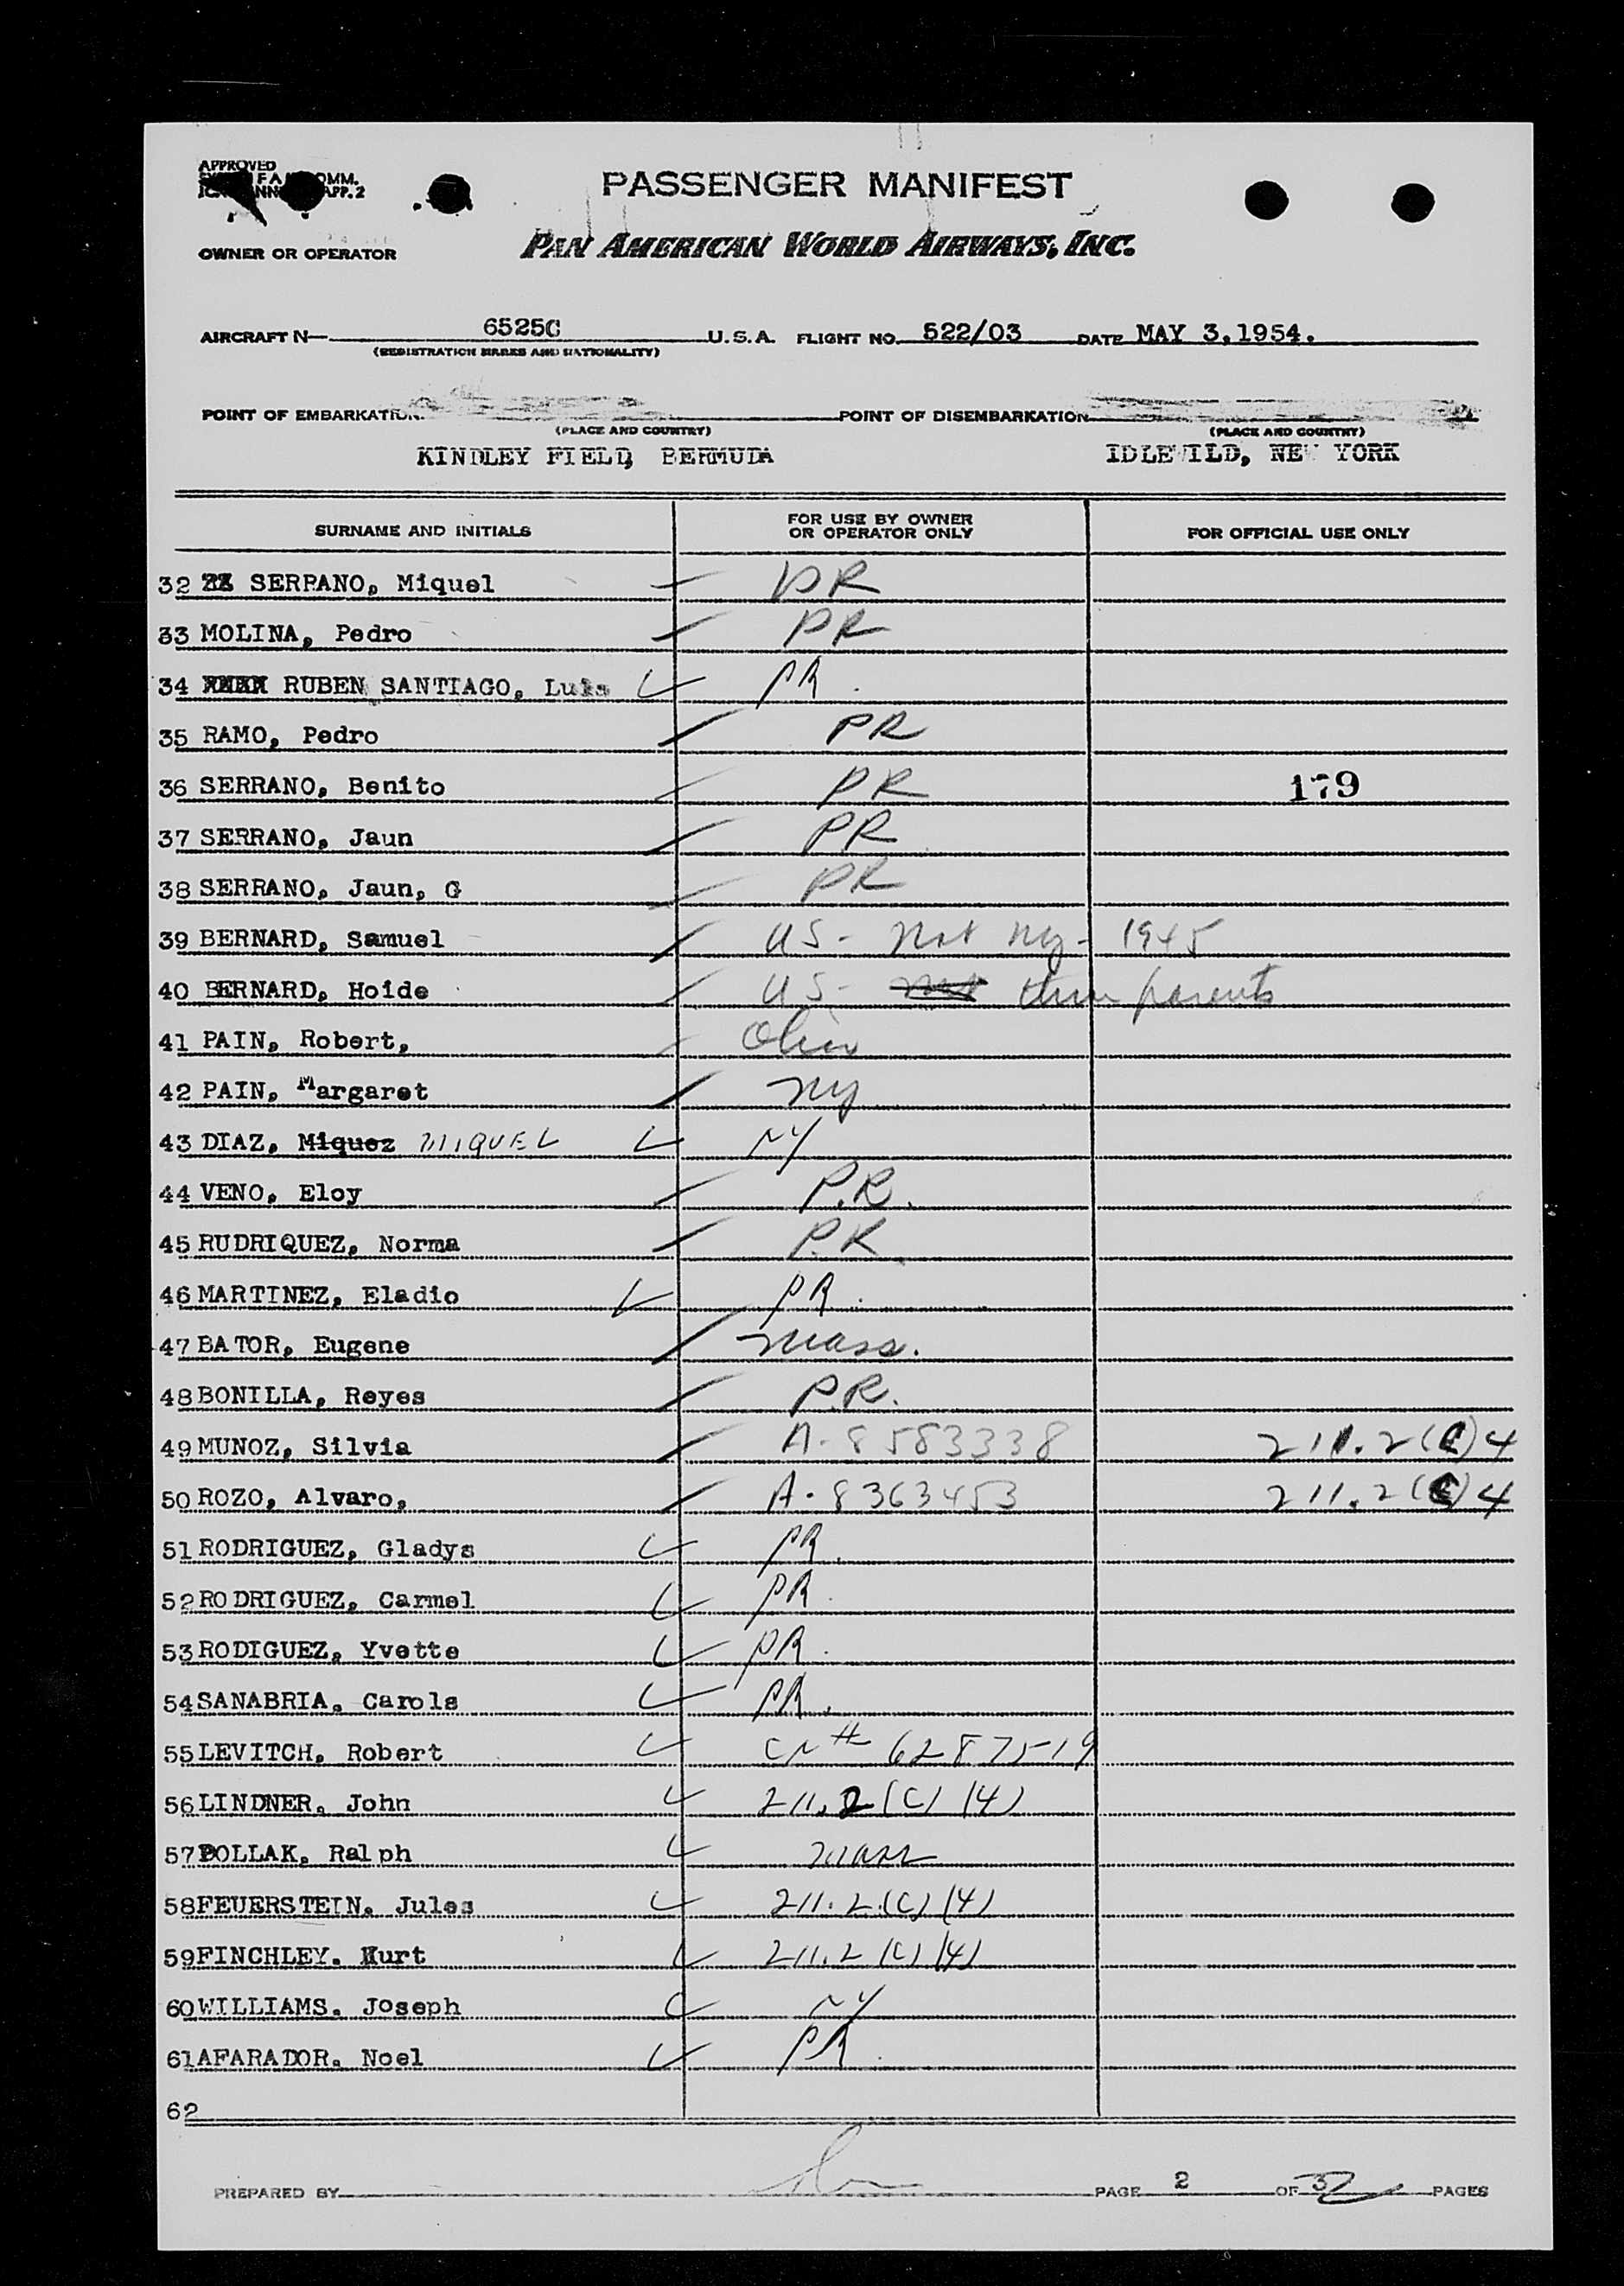 APPROVED
OMM.
APP. 2
PASSENGER MANIFEST
OWNER OR OPERATOR PAN AMERICAN WORLD AIRWAYS, INC.
AIRCRAFT N— 6525C U.S.A. FLIGHT NO. 522/03 DATE MAY 3, 1954.
(REGISTRATION MARKS AND NATIONALITY)
POINT OF EMBARKATION POINT OF DISEMBARKATION
(PLACE AND COUNTRY) (PLACE AND COUNTRY)
KINDLEY FIELD, BERMUDA IDLEWILD, NEW YORK
SURNAME AND INITIALS FOR USE BY OWNER OR OPERATOR ONLY FOR OFFICIAL USE ONLY
32 SERRANO, Miquel PR
33 MOLINA, Pedro PR
34 RUBEN SANTIAGO, Luis PR.
35 RAMO, Pedro PR
36 SERRANO, Benito PR 179
37 SERRANO, Jaun PR
38 SERRANO, Jaun, G PR
39 BERNARD, Samuel US - Nat NY - 1945
40 BERNARD, Hoide US - Nat thru parents
41 PAIN, Robert, Ohio
42 PAIN, Margaret NY
43 DIAZ, Miquez MIQUEL NY
44 VENO, Eloy P.R.
45 RUDRIQUEZ, Norma P.R
46 MARTINEZ, Eladio PR.
47 BATOR, Eugene Mass.
48 BONILLA, Reyes P.R.
49 MUNOZ, Silvia A-8583338 211.2(C)4
50 ROZO, Alvaro, A-8363453 211.2(C)4
51 RODRIGUEZ, Gladys PR.
52 RODRIGUEZ, Carmel PR.
53 RODIGUEZ, Yvette PR.
54 SANABRIA. Carols PR.
55 LEVITCH. Robert CN# 6287519
56 LINDNER. John 211.2(C)(4)
57 POLLAK. Ralph Mass
58 FEUERSTEIN. Jules 211.2.(C)(4)
59 FINCHLEY. Kurt 211.2(C)(4)
60 WILLIAMS. Joseph NY
61 AFARADOR. Noel PR.
62
PREPARED BY PAGE 2 OF 2 PAGES